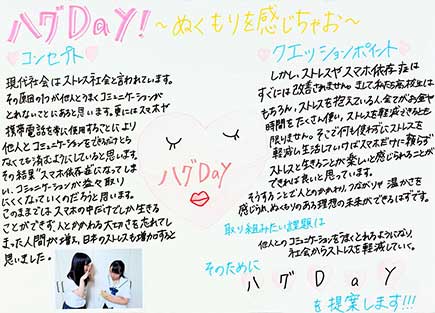 ハグDAY!～ぬくもりを感じちゃお～
コンセプト
現代社会はストレス社会と言われています。
その原因の1つが他人とうまくコミュニケーションが
とれないことにあると思います。更にはスマホや
携帯電話を常に使用することにより
他人とコミュニケーションをとらなくても済むようにしていると思います。
その結果"スマホ依存症"になってしまい、コミュニケーションが益々取り
にくくなっていくのだろうと思います。
このままでは スマホの中だけでしか生きる
ことができず、人とかかわる大切さを忘れてし
まった人間が増え、日本のストレスも増加すると
思いました。
ハグDAY
クエッションポイント
しかし、ストレスやスマホ依存症は
すぐには改善されません。そして私たち高校生は
もちろん、ストレスを抱えている人全員がお金や
時間をたくさん使い、ストレスを軽減できるとも
限りません。そこで何も使わずにストレスを
軽減し生活していけばスマホだけに頼らず
ストレスと生きることが楽しいと感じられることが
できれば良いと思っています。
そうすることで人とのかかわり、つながりや 温かさを
感じられ、ぬくもりのある理想の未来ができるはずです。
取り組みたい課題は
他人とのコミュニケーションを多くとれるようになり、
社会からストレスを軽減していく。
そのために
ハグ DAY
を提案します!!!